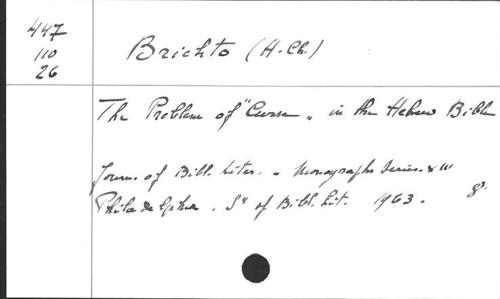 447
110
26
Brichto (H. Ch.)
The Problem of "Curse" in the Hebrew Bible
Journ. of Bibl. Liter. Monographs Series. XIII
Philadelphia. Sy of Bibl. Lit. 1963. 8°